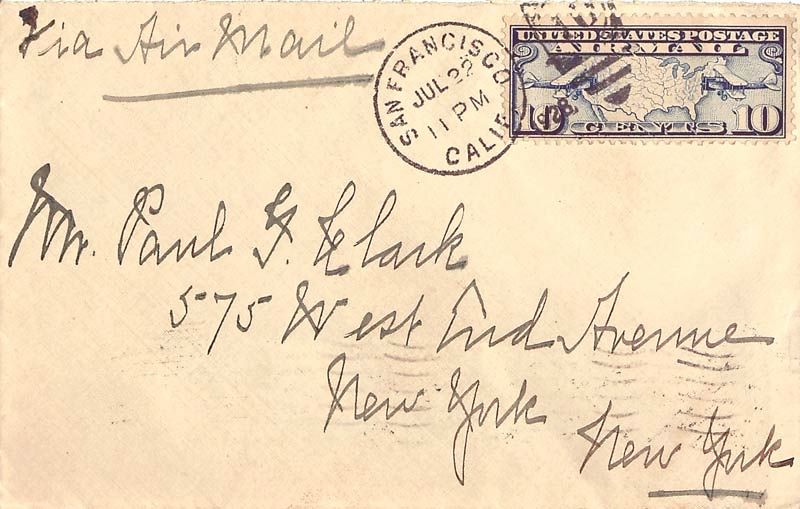 Via Air Mail
SAN FRANCISCO
JUL 22
11 PM
CALIF.
UNITED STATES POSTAGE
AIR MAIL
10 CENTS 10
Mr. Paul F. Clark
575 West End Avenue
New York
New York